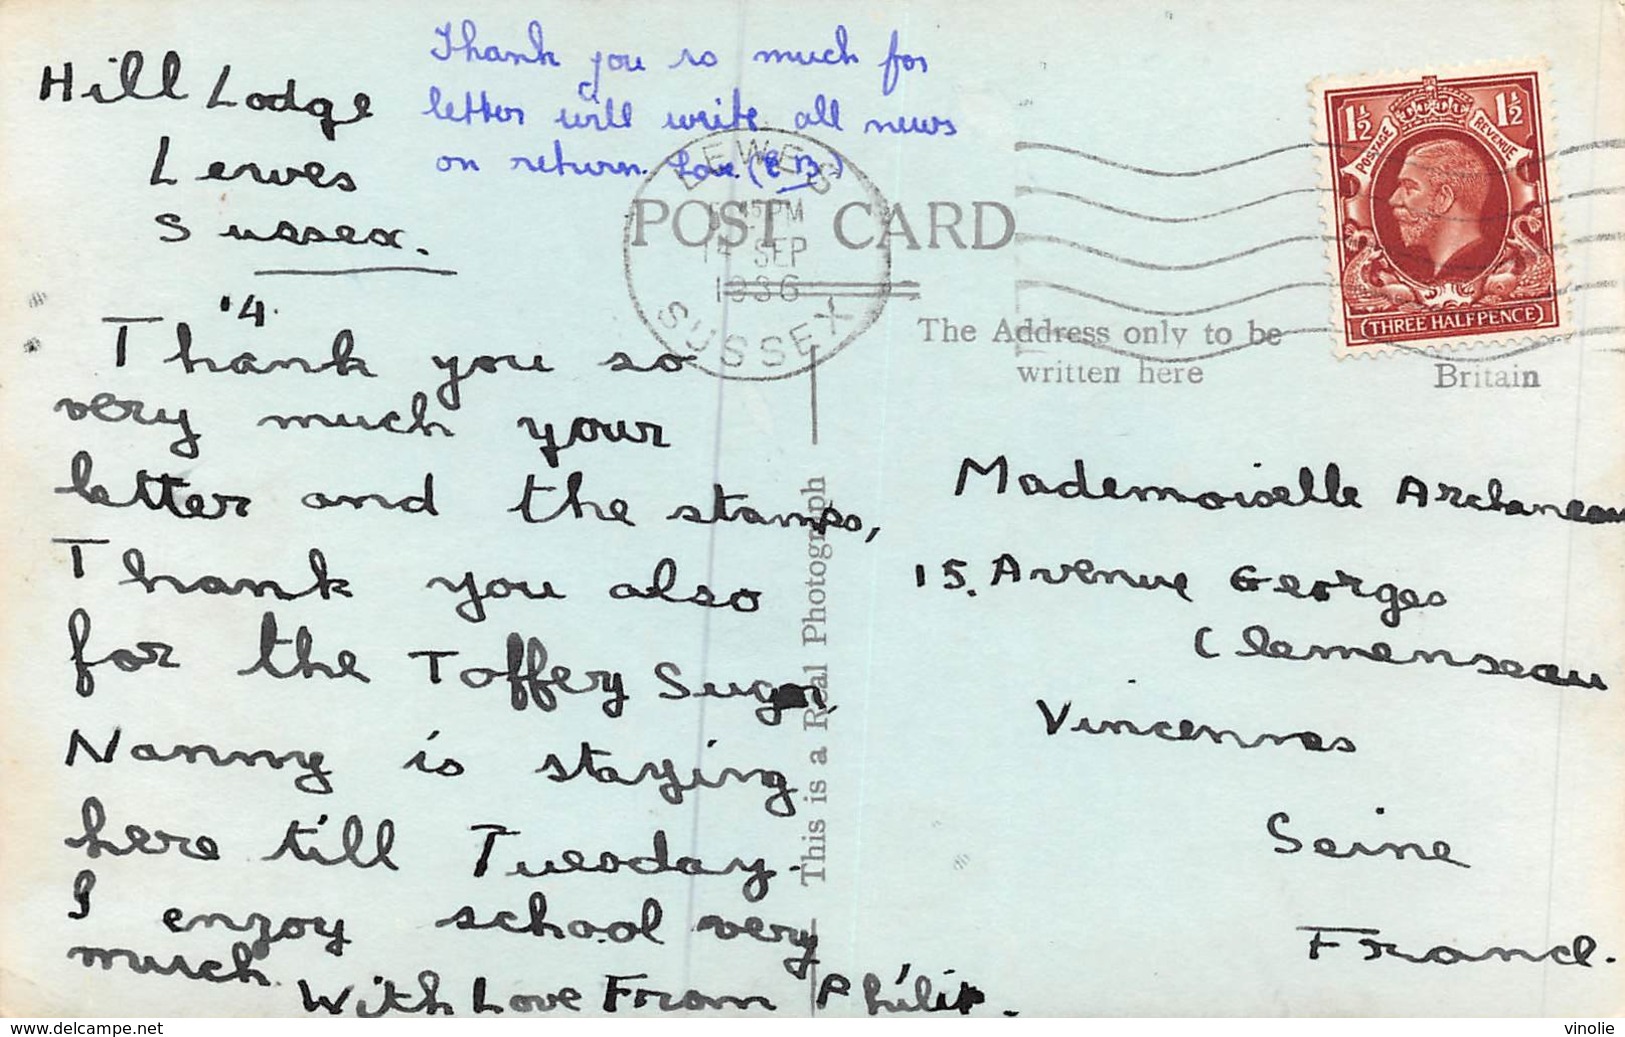 Hill Lodge
Lewes
Sussex.
Thank you so much for
letter will write all news
on return. Love (E B)
LEWES
5.45 PM
SEP
1936
SUSSEX
POST CARD
1½ POSTAGE REVENUE 1½
(THREE HALFPENCE)
The Address only to be
written here
Britain
'14.
Thank you so
very much your
letter and the stamps,
Thank you also
for the Toffery Sugar,
Nanny is staying
here till Tuesday.
I enjoy school very
much.
With Love From Philip.
This is a Real Photograph
Mademoiselle
15. Avenue Georges
Clemenseau
Vincennes
Seine
France.
www.delcampe.net
vinolie